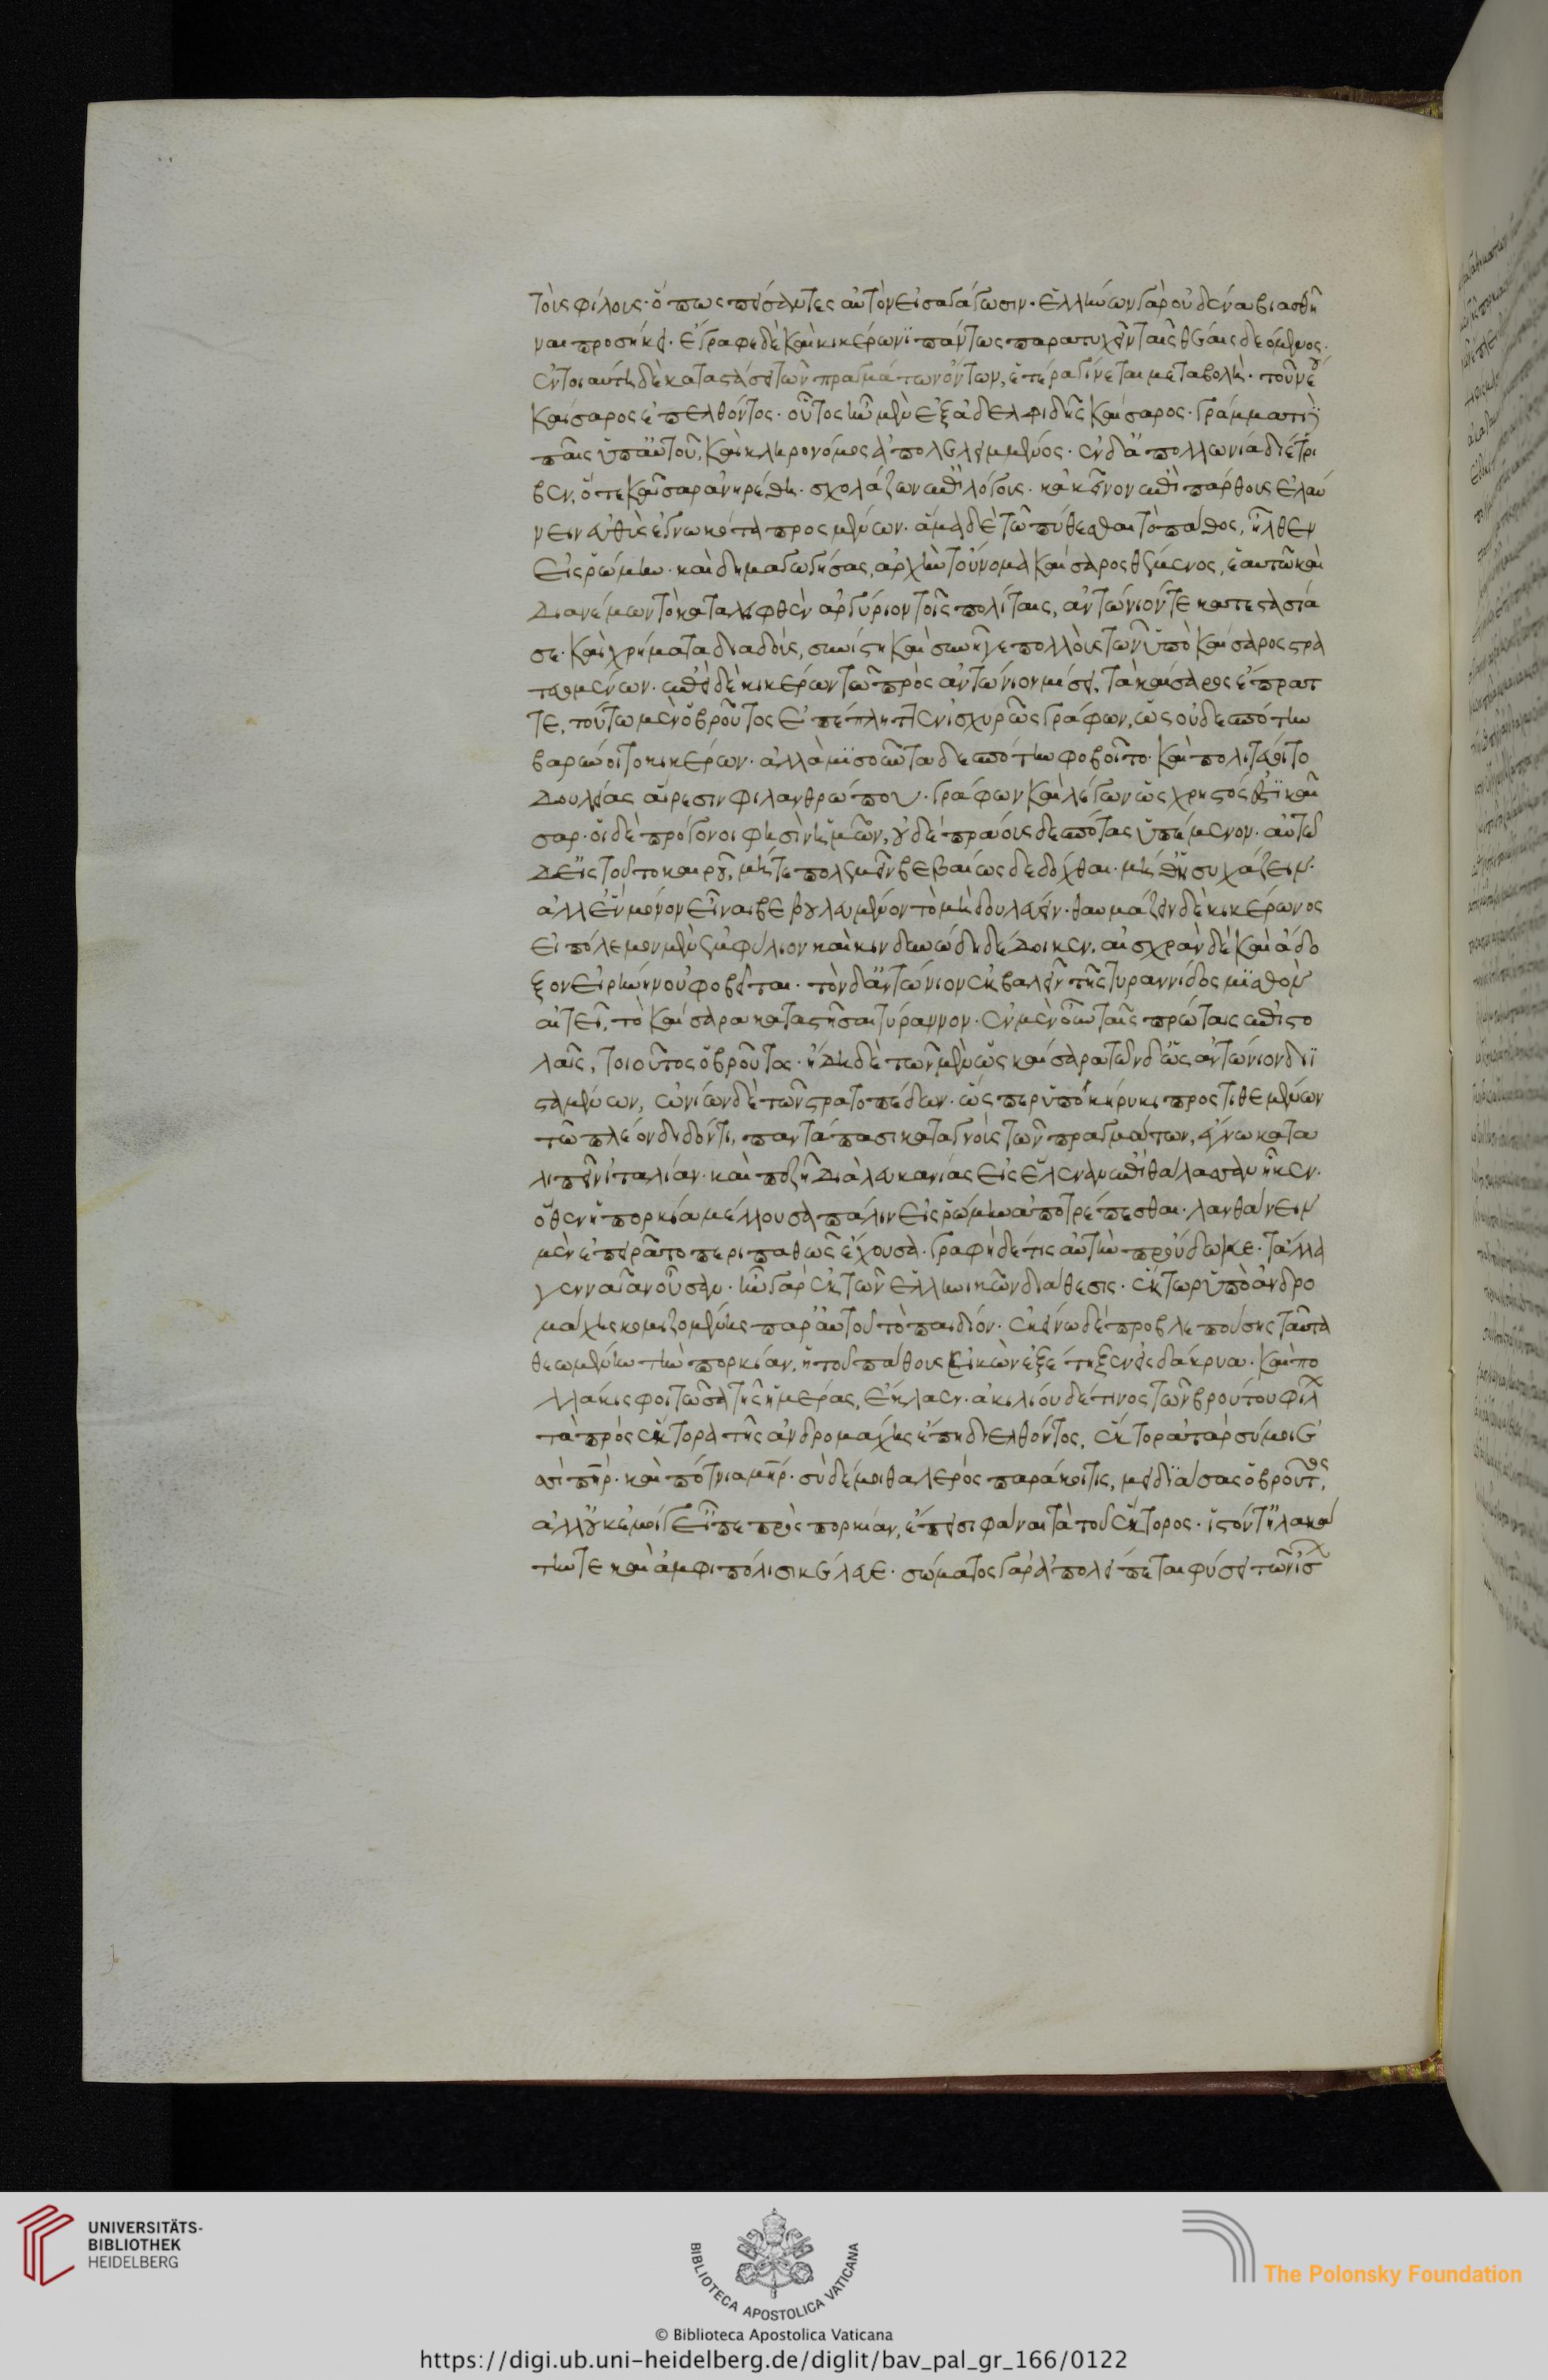 τοῖς φίλοις· ὅπως πείσαντες αὐτὸν εἰσαγάγωσιν· ἑλλήνων γὰρ οὐδένα βιασθῆ
ναι προσήκει· ἔγραφε δὲ καὶ κικέρωνι πάντως παρατυχεῖν ταῖς θέαις δεόμενος·
ἐν τοιαύτη δὲ καταστάσει τῶν πραγμάτων ὄντων, ἑτέρα γίνεται μεταβολὴ· τοῦ νέου
καίσαρος ἐπελθόντος· οὗτος ἦν μὲν ἐξ ἀδελφιδῆς καίσαρος· γράμματι δὲ
παῖς ὑπ' αὐτοῦ, καὶ κληρονόμος ἀπολελειμμένος· ἐν δ' ἀπολλωνία διέτρι
βεν, ὅτε καῖσαρ ἀνηρέθη· σχολάζων ἐπὶ λόγοις· κἀκεῖνον ἐπὶ πάρθους ἐλαύ
νειν εὐθὺς ἐγνωκότα προσμένων· ἅμα δὲ τῶ πυθέσθαι τὸ πάθος, ἦλθεν
εἰς ῥώμην· καὶ δημαγωγήσας, ἀρχὴν τοὔνομα καίσαρος θέμενος, ἑαυτῶ καὶ
διανέμων τὸ καταλειφθὲν ἀργύριον τοῖς πολίταις, ἀντώνιόν τε κατεστασία
σε· καὶ χρήματα διαδοὺς, συνίστη καὶ συνῆγε πολλοὺς τῶν ὑπὸ καίσαρος στρα
τευσμένων· ἐπεὶ δὲ κικέρων τῶ πρὸς ἀντώνιον μίσει, τὰ καίσαρος ἔπρατ
τε, τούτω μὲν ὁ βροῦτος ἐπέπληττεν ἰσχυρῶς γράφων, ὡς οὐ δεσπότην
βαρύνοιτο κικέρων· ἀλλὰ μισοῦντα δεσπότην φοβοῖτο· καὶ πολιτεύοιτο
δουλείας αἵρεσιν φιλανθρώπου· γράφων καὶ λέγων ὡς χρηστός ἐστι καῖ
σαρ· οἱ δὲ πρόγονοι φησὶν ἡμῶν, οὐδὲ πράους δεσπότας ὑπέμενον· αὐτῶ
δ' εἰς τοῦτο καιροῦ, μήτε πολεμεῖν βεβαίως δεδόχθαι· μήθ' ἡσυχάζειν·
ἀλλ' ἓν μόνον εἶναι βεβουλευμένον τὸ μὴ δουλεύειν· θαυμάζειν δὲ κικέρωνος
εἰ πόλεμον μὲν ἐμφύλιον καὶ κινδυνώδη δέδοικεν, αἰσχρὰν δὲ καὶ ἄδο
ξον εἰρήνην οὐ φοβεῖται· τὸν δ' ἀντώνιον ἐκβαλεῖν τῆς τυραννίδος μισθὸν
αἰτεῖ, τὸ καίσαρα καταστῆσαι τύραννον· ἐν μὲν οὖν ταῖς πρώταις ἐπιστο
λαῖς, τοιοῦτος ὁ βροῦτος· ἤδη δὲ τῶν μὲν ὡς καίσαρα τῶν δ' ὡς ἀντώνιον διϊ
σταμένων, ὠνίων δὲ τῶν στρατοπέδων· ὥσπερ ὑπὸ κήρυκι προστιθεμένων
τῶ πλέον διδόντι, παντάπασι καταγνοὺς τῶν πραγμάτων, ἔγνω κατα
λιπεῖν ἰταλίαν· καὶ πεζῆ διὰ λευκανίας εἰς ἐλέαν ἐπὶ θάλασσαν ἧκεν·
ὅθεν ἡ πορκία μέλλουσα πάλιν εἰς ῥώμην ἀποτρέπεσθαι· λανθάνειν
μὲν ἐπειρᾶτο περιπαθῶς ἔχουσα· γραφὴ δέ τις αὐτὴν προύδωκε· τἄλλα
γενναίαν οὖσαν· ἦν γὰρ ἐκ τῶν ἑλληνικῶν διάθεσις· ἕκτωρ ὑπὸ ἀνδρο
μάχης κομιζομένης παρ' αὐτοῦ τὸ παιδίον· ἐκείνω δὲ προβλεπούσης ταῦτα
θεωμένην τὴν πορκίαν, ἡ τοῦ πάθους εἰκὼν ἐξέτηξεν εἰς δάκρυα· καὶ πο
λλάκις φοιτῶσα τῆς ἡμέρας, ἔκλαεν· ἀκιλίου δέ τινος τῶν βρούτου φίλ
τὰ πρὸς ἕκτορα τῆς ἀνδρομάχης ἔπη διελθόντος, ἕκτορ ἀτὰρ σύ μοι ἐ
σσὶ πηρ· καὶ πότνια μηρ· σὺ δέ μοι θαλερὸς παράκοιτις, μειδιάσας ὁ βροῦτος,
ἀλλ' οὐκ ἐμοί γ' εἶπε πρὸς πορκίαν, ἔπεισι φάναι τὰ τοῦ ἕκτορος· ἱστόν τ' ἠλακά
την τε καὶ ἀμφιπόλισι κέλευε· σώματος γὰρ ἀπολείπεται φύσει τῶν ἰσ
UNIVERSITÄTS-
BIBLIOTHEK
HEIDELBERG
BIBLIOTECA APOSTOLICA VATICANA
The Polonsky Foundation
© Biblioteca Apostolica Vaticana
https://digi.ub.uni-heidelberg.de/diglit/bav_pal_gr_166/0122